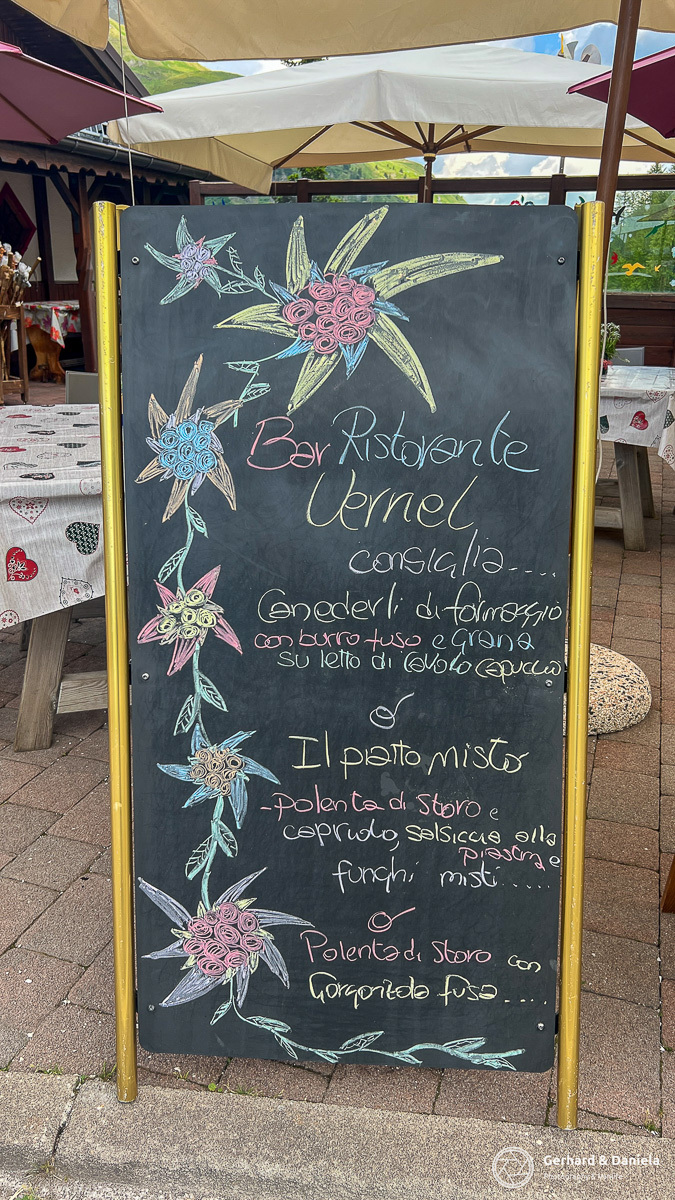 Bar Ristorante
Vernel
consiglia....
Canederli di formaggio
con burro fuso e Grana
su letto di cavolo capuccio
o
Il piatto misto
-polenta di Storo e
capriolo, salsiccia alla
piastra e
funghi misti.....
o
Polenta di Storo con
Gorgonzola fusa....
Gerhard & Daniela